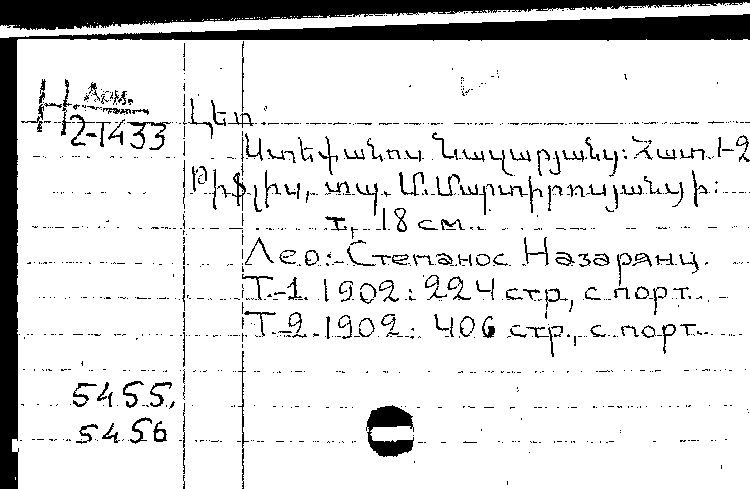 Н Арм.
2-1433
Լեո:
Ստեփանոս Նազարյանց: Հատ. 1-2
Թիֆլիս, տպ. Մ. Մարտիրոսյանցի:
т, 18 см.
Лео: Степанос Назарянц.
Т-1. 1902: 224 стр, с порт.
Т-2. 1902: 406 стр., с порт.
5455,
5456